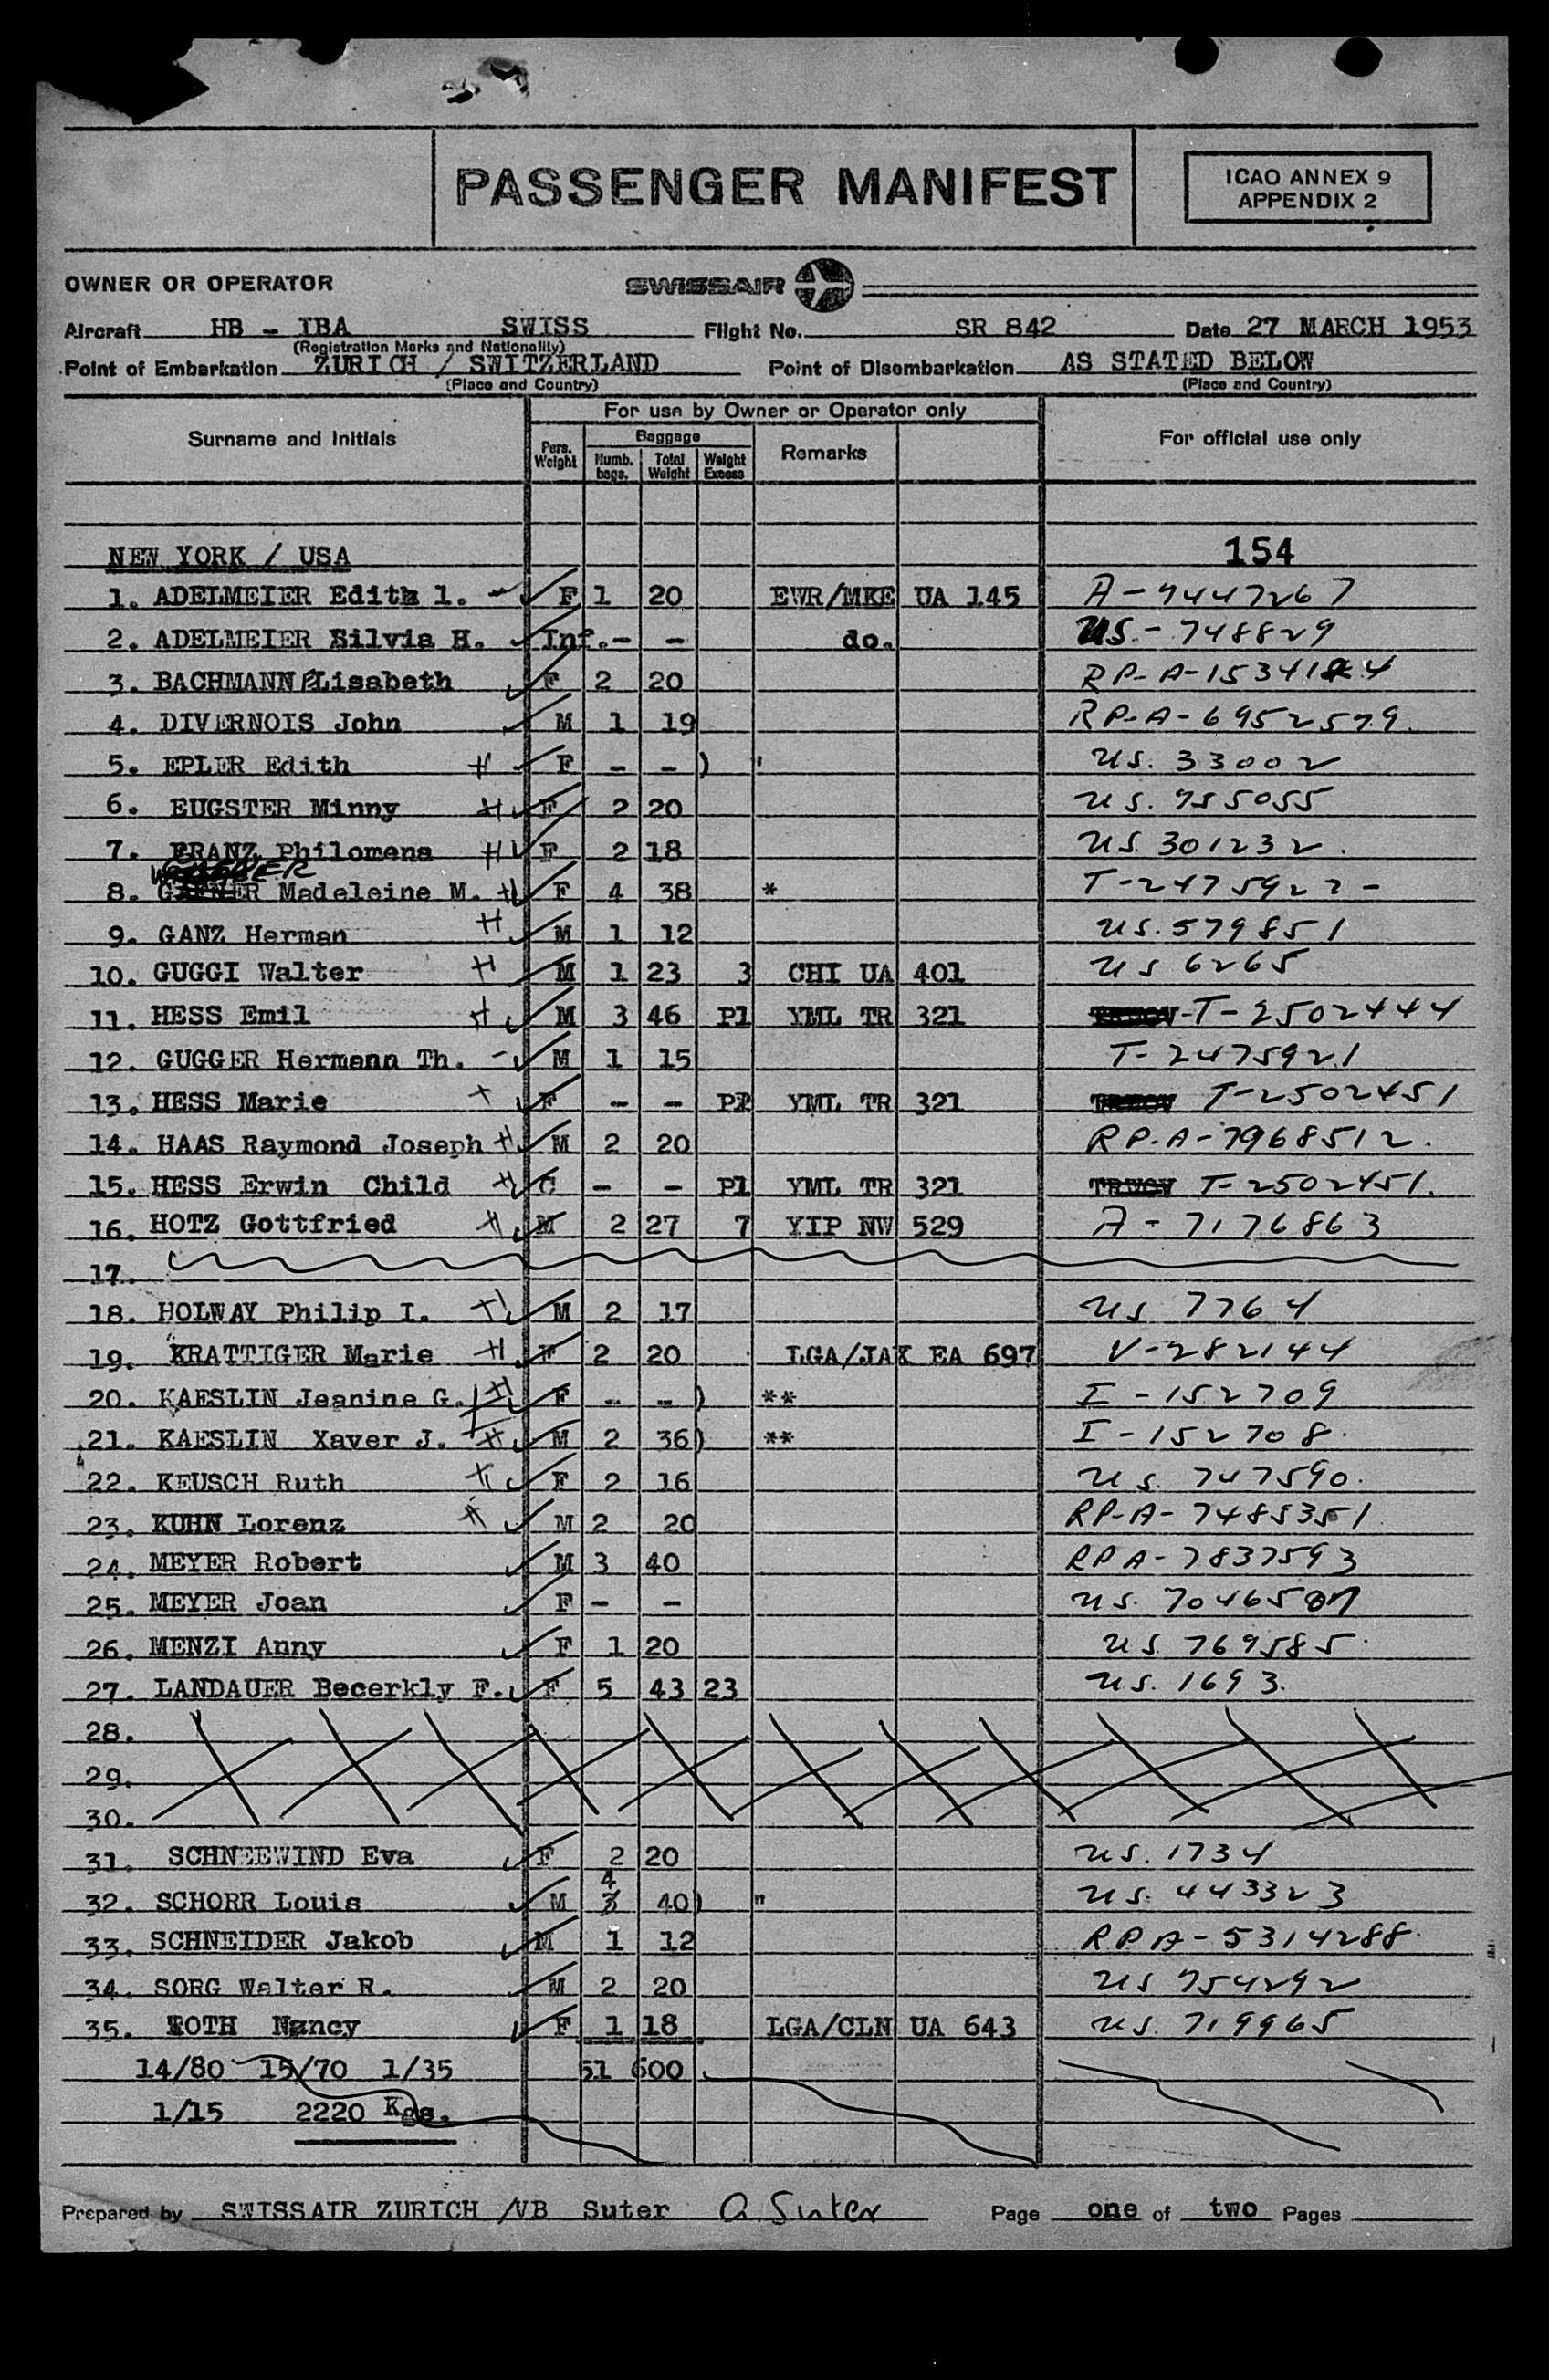 PASSENGER MANIFEST
ICAO ANNEX 9
APPENDIX 2
OWNER OR OPERATOR SWISSAIR
Aircraft HB - IBA SWISS Flight No. SR 842 Date 27 MARCH 1953
(Registration Marks and Nationality)
Point of Embarkation ZURICH / SWITZERLAND Point of Disembarkation AS STATED BELOW
(Place and Country) (Place and Country)
Surname and Initials For use by Owner or Operator only For official use only
Pers. Weight Baggage Remarks
Numb. bags. Total Weight Weight Excess
NEW YORK / USA 154
1. ADELMEIER Edith l. F 1 20 EWR/MKE UA 145 A-9447267
2. ADELMEIER Silvia H. Inf. - - do. US.-748829
3. BACHMANN Elisabeth F 2 20 RP-A-
4. DIVERNOIS John M 1 19 RP-A-6952579.
5. EPLER Edith H F - - ) ' US. 33002
6. EUGSTER Minny H F 2 20 US. 755055
7. FRANZ Philomena H F 2 18 US. 301232.
8. Madeleine M. H F 4 38 * T-2475922-
9. GANZ Herman H M 1 12 US. 579851
10. GUGGI Walter H M 1 23 3 CHI UA 401 US 6265
11. HESS Emil H M 3 46 Pl YML TR 321 T-2502444
12. GUGGER Hermann Th. - M 1 15 T-2475921
13. HESS Marie + F - - Pl YML TR 321 T-2502451
14. HAAS Raymond Joseph H M 2 20 RP.A-7968512.
15. HESS Erwin Child H C - - Pl YML TR 321 T-2502451.
16. HOTZ Gottfried H M 2 27 7 YIP NW 529 A-7176863
17.
18. HOLWAY Philip I. H M 2 17 US 7764
19. KRATTIGER Marie H F 2 20 LGA/JAX EA 697 V-282144
20. KAESLIN Jeanine G. H F - - ) ** I-152709
21. KAESLIN Xaver J. H M 2 36) ** I-152708.
22. KEUSCH Ruth H F 2 16 US. 747590.
23. KUHN Lorenz H M 2 20 RP-A-7485351
24. MEYER Robert M 3 40 RPA-7837593
25. MEYER Joan F - - US.
26. MENZI Anny F 1 20 US. 769585.
27. LANDAUER Becerkly F. F 5 43 23 US. 1693.
28.
29.
30.
31. SCHNEEWIND Eva F 2 20 US. 1734
4
32. SCHORR Louis M 3 40) " US. 443323
33. SCHNEIDER Jakob M 1 12 RPA-5314288.
34. SORG Walter R. M 2 20 US 754292
35. Nancy F 1 18 LGA/CLN UA 643 US. 719965
14/80 15/70 1/35 51 600
1/15 2220 Kgs.
Prepared by SWISSAIR ZURICH /VB Suter A. Suter Page one of two Pages